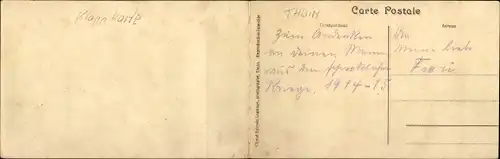 Klappkarte
THUIN
Carte Postale
Correspondance
Adresse
Zum Andenken
an deinen Mann
aus dem schrecklichen
Kriege. 1914-15
An
Meine liebe
Frau